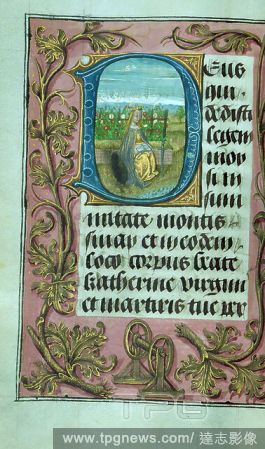 Deus
qui
dedisti
legem
moy
si in
sum
mitate montis
sinay et in eodem
loco corpus beate
katherine virginis
et martiris tue per
TPG
www.tpgnews.com/ 達志影像